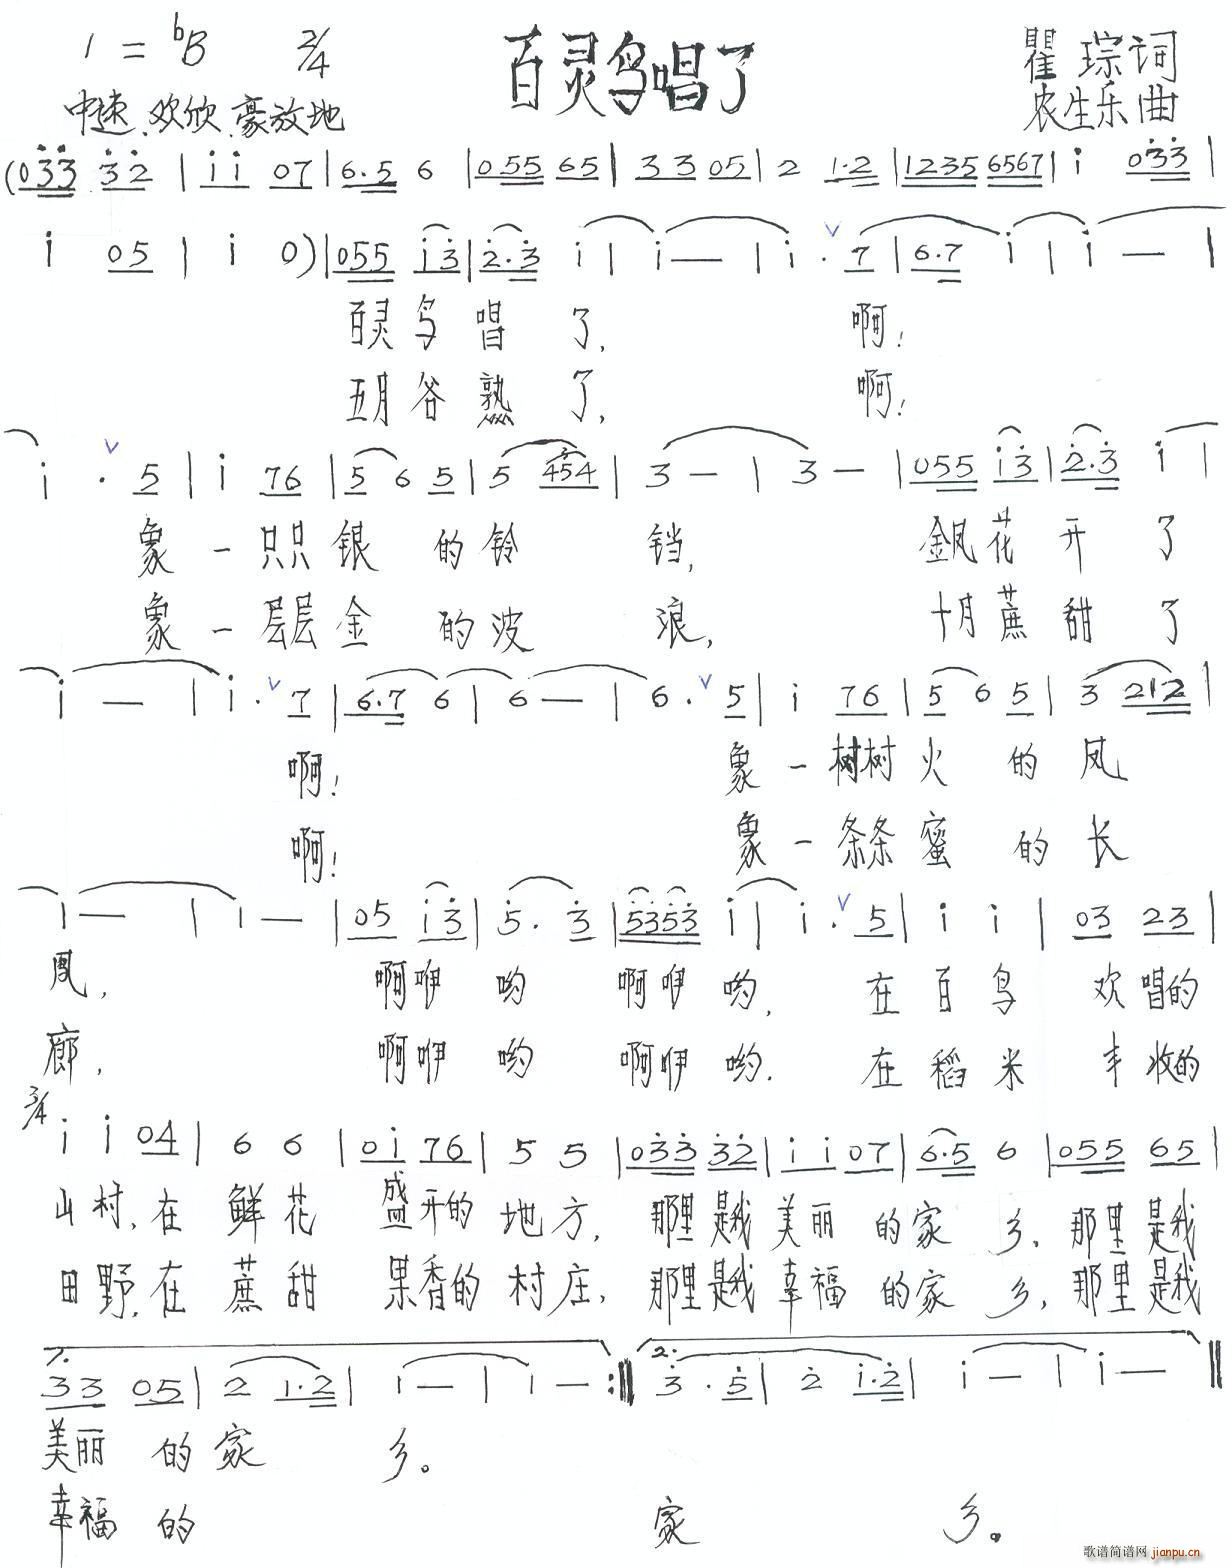 1 = ♭B 2/4 百灵鸟唱了 瞿琮词
中速、欢欣、豪放地 农生乐曲
(033 32 | 11 07 | 6.5 6 | 055 65 | 33 05 | 2 1.2 | 1235 6567 | 1 033 |
1 05 | 1 0) | 055 13 | 2.3 1 | 1 — | 1 . 7 | 6.7 1 | 1 — |
百灵鸟唱了, 啊!
五月谷熟了, 啊!
1 . 5 | 1 76 | 5 6 5 | 5 454 | 3 — | 3 — | 055 13 | 2.3 1 |
象一只只银的铃铛, 金凤花开了
象一层层金的波浪, 十月蔗甜了
1 — | 1 . 7 | 6.7 6 | 6 — | 6 . 5 | 1 76 | 5 6 5 | 3 212 |
啊! 象一树树火的凤
啊! 象一条条蜜的长
1 — | 1 — | 05 13 | 5 . 3 | 5353 1 | 1 . 5 | 1 1 | 03 23 |
凰, 啊咿哟 啊咿哟, 在百鸟欢唱的
廊, 啊咿哟 啊咿哟. 在稻米丰收的
3/4
1 1 04 | 6 6 | 01 76 | 5 5 | 033 32 | 11 07 | 6.5 6 | 055 65 |
山村,在鲜花盛开的地方, 那里是我美丽的家乡、那里是我
田野,在蔗甜果香的村庄, 那里是我幸福的家乡,那里是我
1. 33 05 | 2 1.2 | 1 — | 1 — :|| 2. 3 . 5 | 2 1.2 | 1 — | 1 — ||
美丽的家乡。
幸福的 家乡。
歌谱简谱网 jianpu.cn